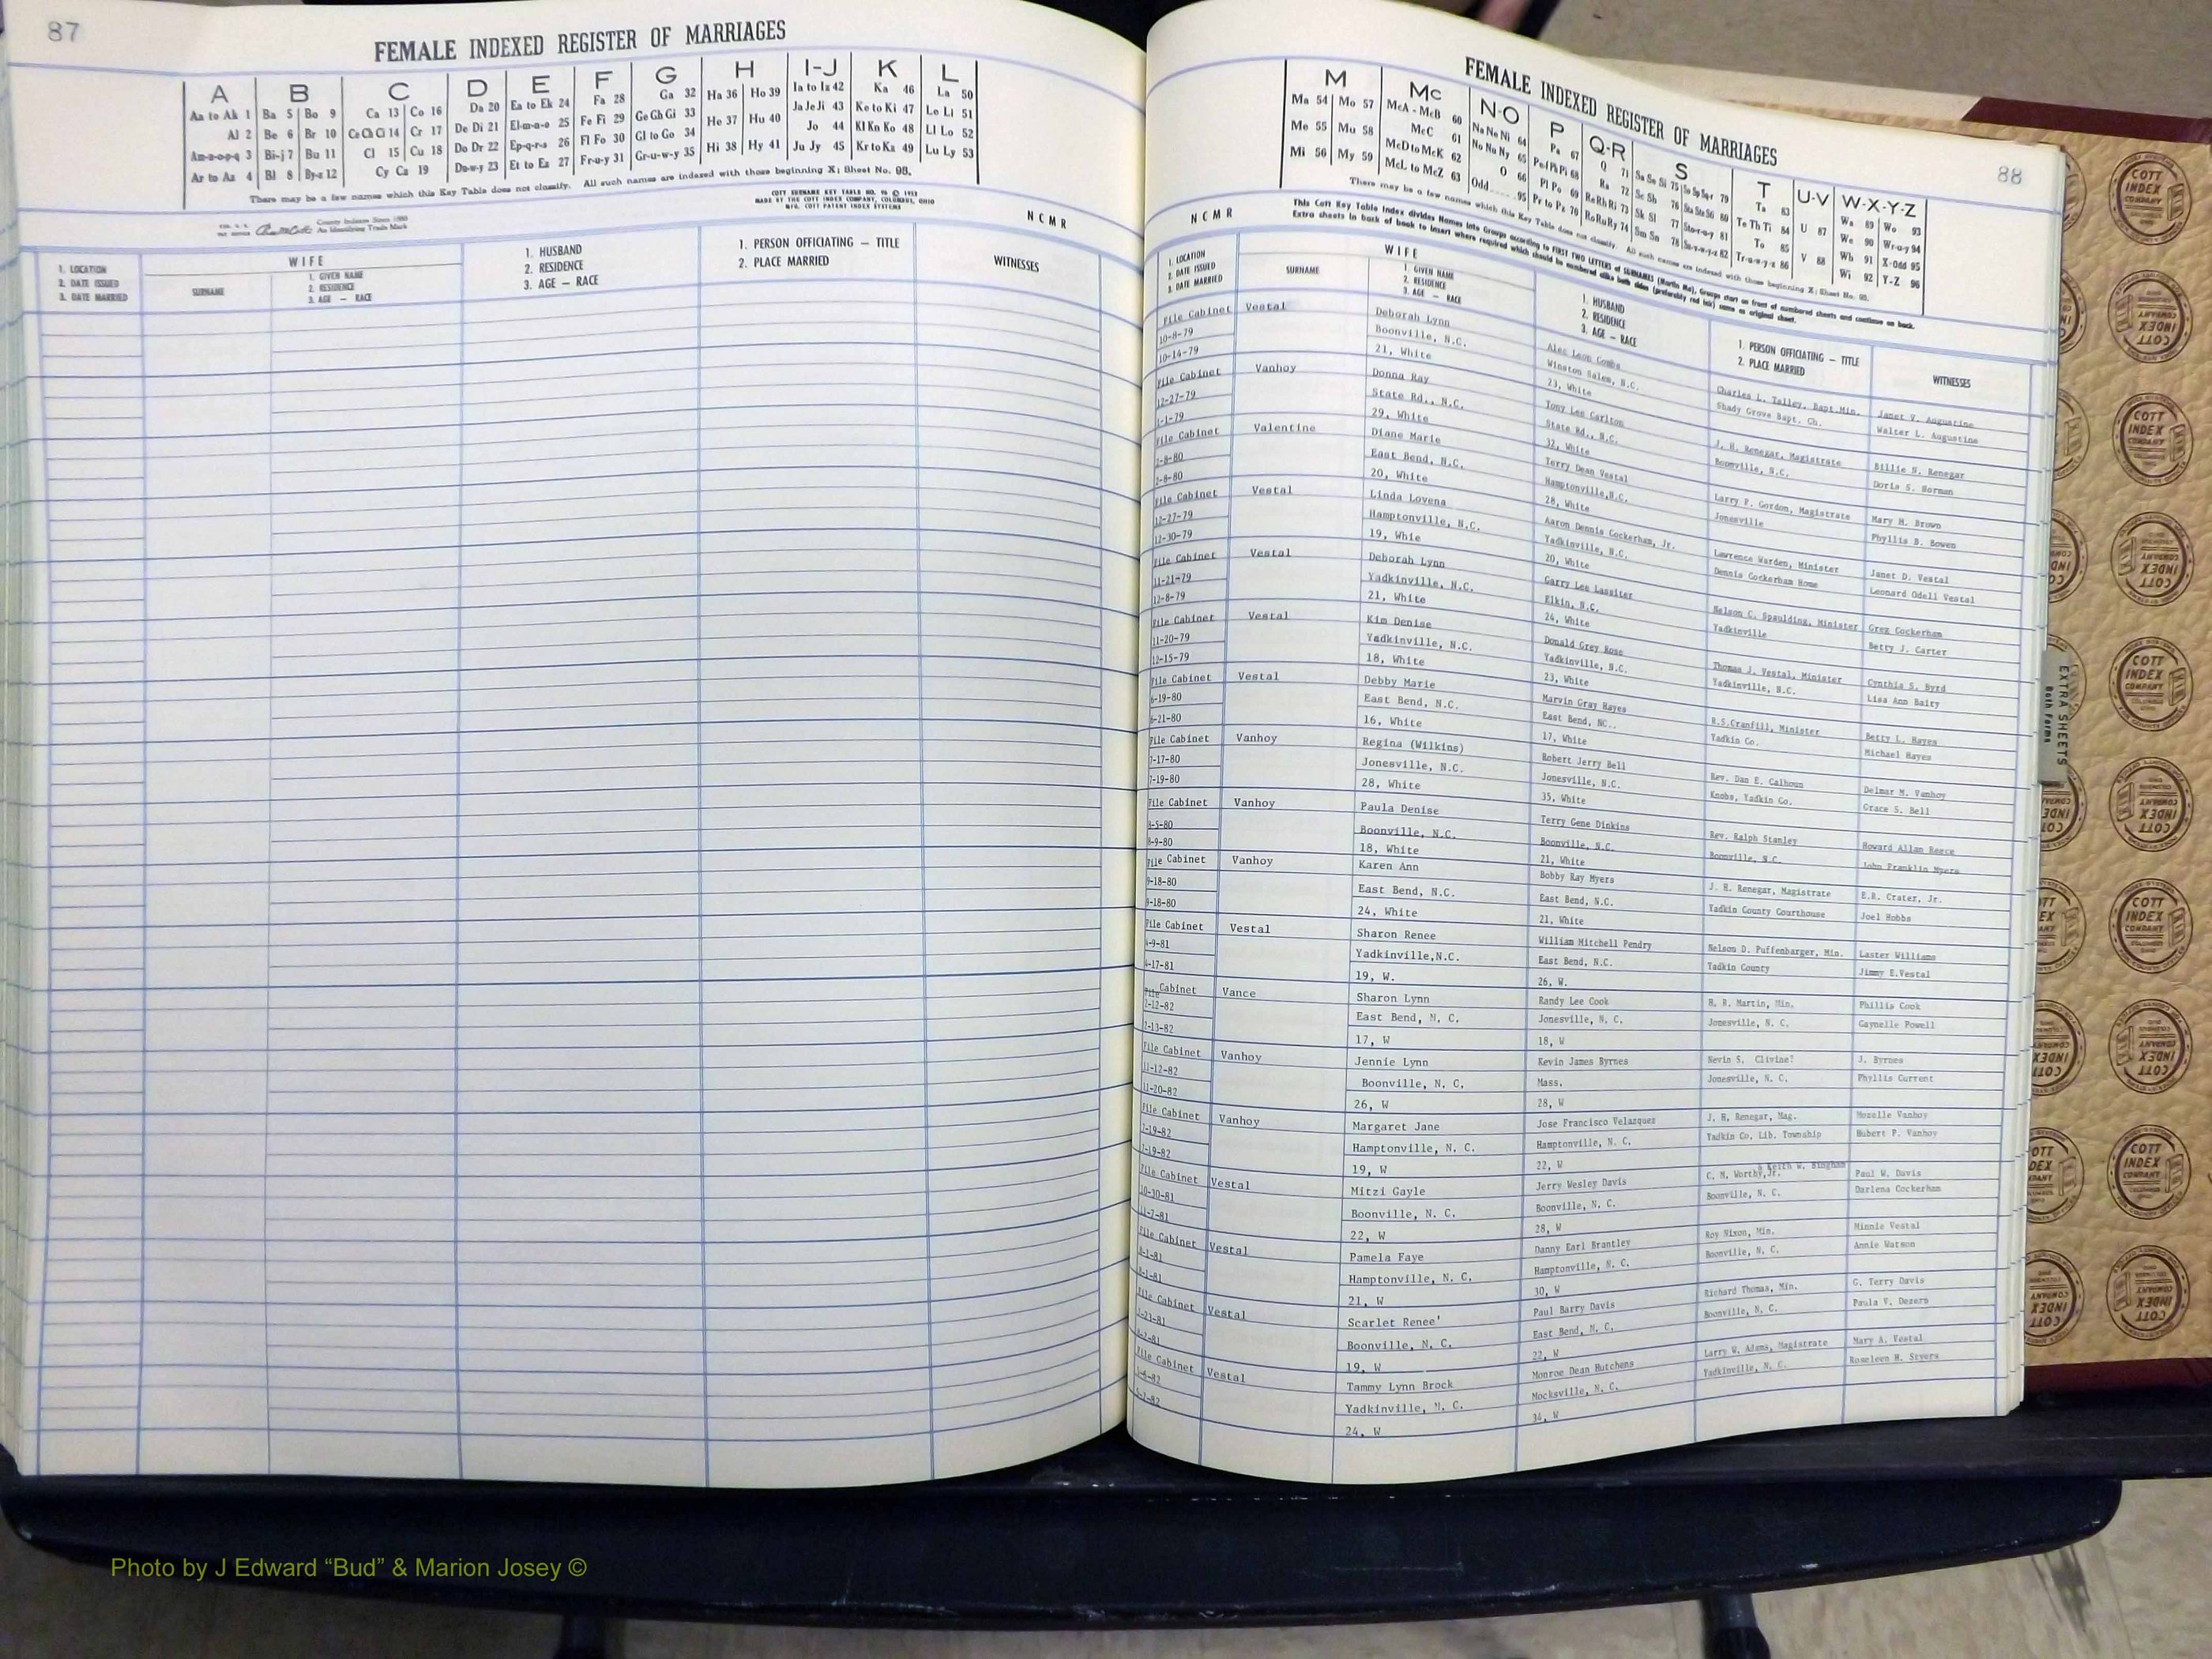 87
FEMALE INDEXED REGISTER OF MARRIAGES
A B C D E F G H I-J K L
Aa to Ak 1 Ba 5 Bo 9 Ca 13 Co 16 Da 20 Ea to Ek 24 Fa 28 Ga 32 Ha 36 Ho 39 Ia to Iz 42 Ka 46 La 50
Al 2 Be 6 Br 10 Ce Ch Ci 14 Cr 17 De Di 21 El-m-n-o 25 Fe Fi 29 Ge Gh Gi 33 He 37 Hu 40 Ja Je Ji 43 Ke to Ki 47 Le Li 51
Am-n-o-p-q 3 Bi-j 7 Bu 11 Cl 15 Cu 18 Do Dr 22 Ep-q-r-s 26 Fl Fo 30 Gl to Go 34 Hi 38 Hy 41 Jo 44 Kl Kn Ko 48 Ll Lo 52
Ar to Az 4 Bl 8 By-z 12 Cy Cz 19 Du-w-y 23 Et to Ez 27 Fr-u-y 31 Gr-u-w-y 35 Ju Jy 45 Kr to Kz 49 Lu Ly 53
There may be a few names which this Key Table does not classify. All such names are indexed with those beginning X; Sheet No. 98.
COTT SURNAME KEY TABLE NO. 96 © 1953
MADE BY THE COTT INDEX COMPANY, COLUMBUS, OHIO
MFG. COTT PATENT INDEX SYSTEMS
County Indexes Since 1880
An Identifying Trade Mark
NCMR
1. LOCATION
2. DATE ISSUED
3. DATE MARRIED
WIFE
SURNAME
1. GIVEN NAME
2. RESIDENCE
3. AGE — RACE
1. HUSBAND
2. RESIDENCE
3. AGE — RACE
1. PERSON OFFICIATING — TITLE
2. PLACE MARRIED
WITNESSES
FEMALE INDEXED REGISTER OF MARRIAGES
88
M Mc N-O P Q-R S T U-V W-X-Y-Z
Ma 54 Mo 57 McA - McB 60 Na Ne Ni 64 Pa 67 Q 71 Sa Se Si 75 So Sp Sq-r 79 Ta 83 U 87 Wa 89 Wo 93
Me 55 Mu 58 McC 61 No Nu Ny 65 Pe-f Ph Pi 68 Ra 72 Sc Sh 76 Sta Ste Sti 80 Te Th Ti 84 V 88 We 90 Wr-u-y 94
Mi 56 My 59 McD to McK 62 O 66 Pl Po 69 Re Rh Ri 73 Sk Sl 77 Sto-r-u-y 81 To 85 Wh 91 X-Odd 95
McL to McZ 63 Odd 95 Pr to Pz 70 Ro Ru Ry 74 Sm Sn 78 Su-v-w-y-z 82 Tr-u-w-y-z 86 Wi 92 Y-Z 96
There may be a few names which this Key Table does not classify. All such names are indexed with those beginning X; Sheet No. 98.
NCMR
This Cott Key Table Index divides Names into Groups according to FIRST TWO LETTERS of SURNAMES (Martin Ma), Groups start on front of numbered sheets and continue on back.
Extra sheets in back of book to insert where required which should be numbered alike both sides (preferably red ink) same as original sheet.
1. LOCATION
2. DATE ISSUED
3. DATE MARRIED
WIFE
SURNAME
1. GIVEN NAME
2. RESIDENCE
3. AGE — RACE
1. HUSBAND
2. RESIDENCE
3. AGE — RACE
1. PERSON OFFICIATING — TITLE
2. PLACE MARRIED
WITNESSES
File Cabinet Vestal Deborah Lynn Alec Leon Combs Charles L. Talley, Bapt.Min. Janet V. Augustine
10-8-79 Boonville, N.C. Winston Salem, N.C. Shady Grove Bapt. Ch. Walter L. Augustine
10-14-79 21, White 23, White
File Cabinet Vanhoy Donna Ray Tony Lee Carlton J. H. Renegar, Magistrate Billie N. Renegar
12-27-79 State Rd., N.C. State Rd., N.C. Boonville, N.C. Doris S. Norman
1-1-79 29, White 32, White
File Cabinet Valentine Diane Marie Terry Dean Vestal Larry P. Gordon, Magistrate Mary H. Brown
2-8-80 East Bend, N.C. Hamptonville,N.C. Jonesville Phyllis B. Bowen
2-8-80 20, White 28, White
File Cabinet Vestal Linda Lovena Aaron Dennis Cockerham, Jr. Lawrence Warden, Minister Janet D. Vestal
12-27-79 Hamptonville, N.C. Yadkinville, N.C. Dennis Cockerham Home Leonard Odell Vestal
12-30-79 19, Whie 20, White
File Cabinet Vestal Deborah Lynn Garry Lee Lassiter Nelson C. Spaulding, Minister Greg Cockerham
11-21-79 Yadkinville, N.C. Elkin, N.C. Yadkinville Betty J. Carter
12-8-79 21, White 24, White
File Cabinet Vestal Kim Denise Donald Grey Rose Thomas J. Vestal, Minister Cynthia S. Byrd
11-20-79 Yadkinville, N.C. Yadkinville, N.C. Yadkinville, N.C. Lisa Ann Baity
12-15-79 18, White 23, White
File Cabinet Vestal Debby Marie Marvin Gray Hayes R.S.Cranfill, Minister Betty L. Hayes
6-19-80 East Bend, N.C. East Bend, NC.. Yadkin Co. Michael Hayes
6-21-80 16, White 17, White
File Cabinet Vanhoy Regina (Wilkins) Robert Jerry Bell Rev. Dan E. Calhoun Delmar M. Vanhoy
7-17-80 Jonesville, N.C. Jonesville, N.C. Knobs, Yadkin Co. Grace S. Bell
7-19-80 28, White 35, White
File Cabinet Vanhoy Paula Denise Terry Gene Dinkins Rev. Ralph Stanley Howard Allan Reece
8-5-80 Boonville, N.C. Boonville, N.C. Boonville, N.C. John Franklin Myers
8-9-80 18, White 21, White
File Cabinet Vanhoy Karen Ann Bobby Ray Myers J. H. Renegar, Magistrate E.R. Crater, Jr.
9-18-80 East Bend, N.C. East Bend, N.C. Yadkin County Courthouse Joel Hobbs
9-18-80 24, White 21, White
File Cabinet Vestal Sharon Renee William Mitchell Pendry Nelson D. Puffenbarger, Min. Laster Williams
4-9-81 Yadkinville,N.C. East Bend, N.C. Yadkin County Jimmy E.Vestal
4-17-81 19, W. 26, W.
File Cabinet Vance Sharon Lynn Randy Lee Cook H. R. Martin, Min. Phillis Cook
2-12-82 East Bend, N. C. Jonesville, N. C. Jonesville, N. C. Gaynelle Powell
2-13-82 17, W 18, W
File Cabinet Vanhoy Jennie Lynn Kevin James Byrnes Nevin S. J. Byrnes
11-12-82 Boonville, N. C. Mass. Jonesville, N. C. Phyllis Current
11-20-82 26, W 28, W
File Cabinet Vanhoy Margaret Jane Jose Francisco Velazquez J. H. Renegar, Mag. Mozelle Vanhoy
7-19-82 Hamptonville, N. C. Hamptonville, N. C. Yadkin Co. Lib. Township Hubert P. Vanhoy
7-19-82 19, W 22, W
File Cabinet Vestal Mitzi Gayle Jerry Wesley Davis C. M. Worthy,Jr. & Keith W. Bingham Paul W. Davis
10-30-81 Boonville, N. C. Boonville, N. C. Boonville, N. C. Darlena Cockerham
11-7-81 22, W 28, W
File Cabinet Vestal Pamela Faye Danny Earl Brantley Roy Nixon, Min. Minnie Vestal
8-1-81 Hamptonville, N. C. Hamptonville, N. C. Boonville, N. C. Annie Watson
8-1-81 21, W 30, W
File Cabinet Vestal Scarlet Renee' Paul Barry Davis Richard Thomas, Min. G. Terry Davis
Boonville, N. C. East Bend, N. C. Boonville, N. C. Paula V. Dezern
19, W 22, W
File Cabinet Vestal Tammy Lynn Brock Monroe Dean Hutchens Larry W. Adams, Magistrate Mary A. Vestal
Yadkinville, N. C. Mocksville, N. C. Yadkinville, N. C. Roseleen H. Styers
24, W 34, W
EXTRA SHEETS
Both Forms
COTT INDEX COMPANY
Photo by J Edward “Bud” & Marion Josey ©